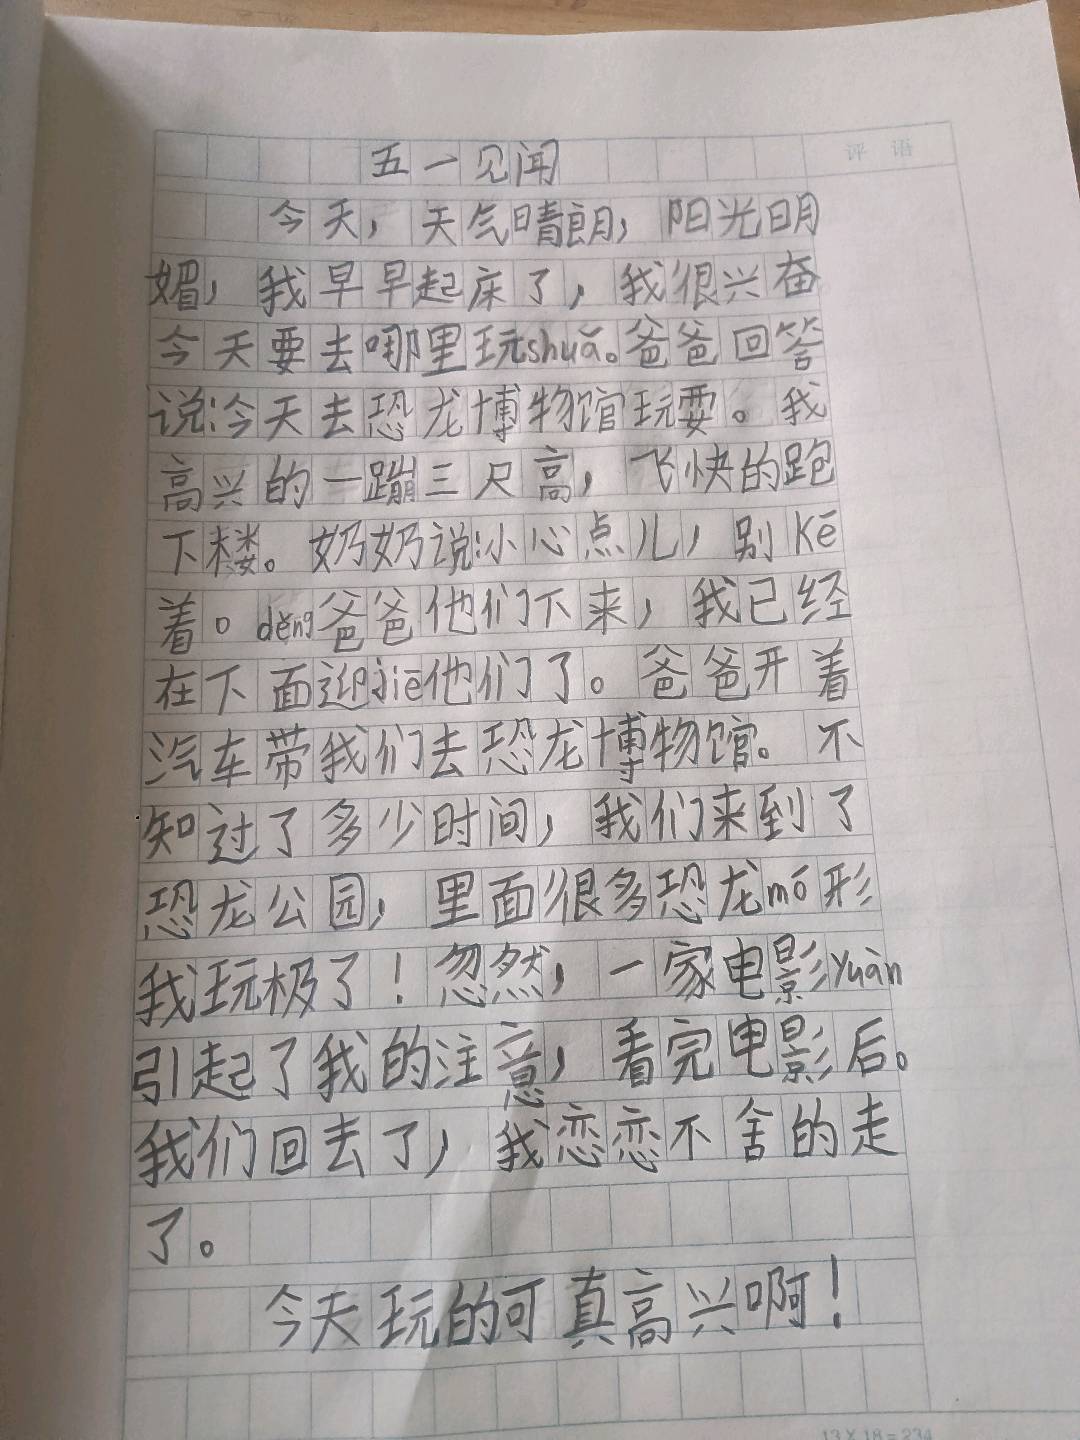 五一见闻
评 语
今天，天气晴朗，阳光明
媚，我早早起床了，我很兴奋
今天要去哪里玩shuǎ。爸爸回答
说:今天去恐龙博物馆玩耍。我
高兴的一蹦三尺高，飞快的跑
下楼。奶奶说:小心点儿，别kē
着。děng爸爸他们下来，我已经
在下面迎jiē他们了。爸爸开着
汽车带我们去恐龙博物馆。不
知过了多少时间，我们来到了
恐龙公园，里面很多恐龙mó形
我玩极了！忽然，一家电影Yuàn
引起了我的注意，看完电影后。
我们回去了，我恋恋不舍的走
了。
今天玩的可真高兴啊！
13×18=234